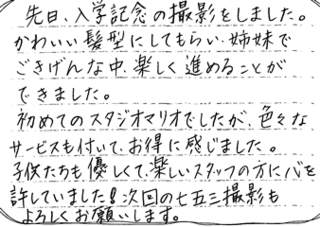 先日、入学記念の撮影をしました。
かわいい髪型にしてもらい、姉妹で
ごきげんな中、楽しく進めることが
できました。
初めてのスタジオマリオでしたが、色々な
サービスも付いて、お得に感じました。
子供たちも優しくて、楽しいスタッフの方に心を
許していました!次回の七五三撮影も
よろしくお願いします。